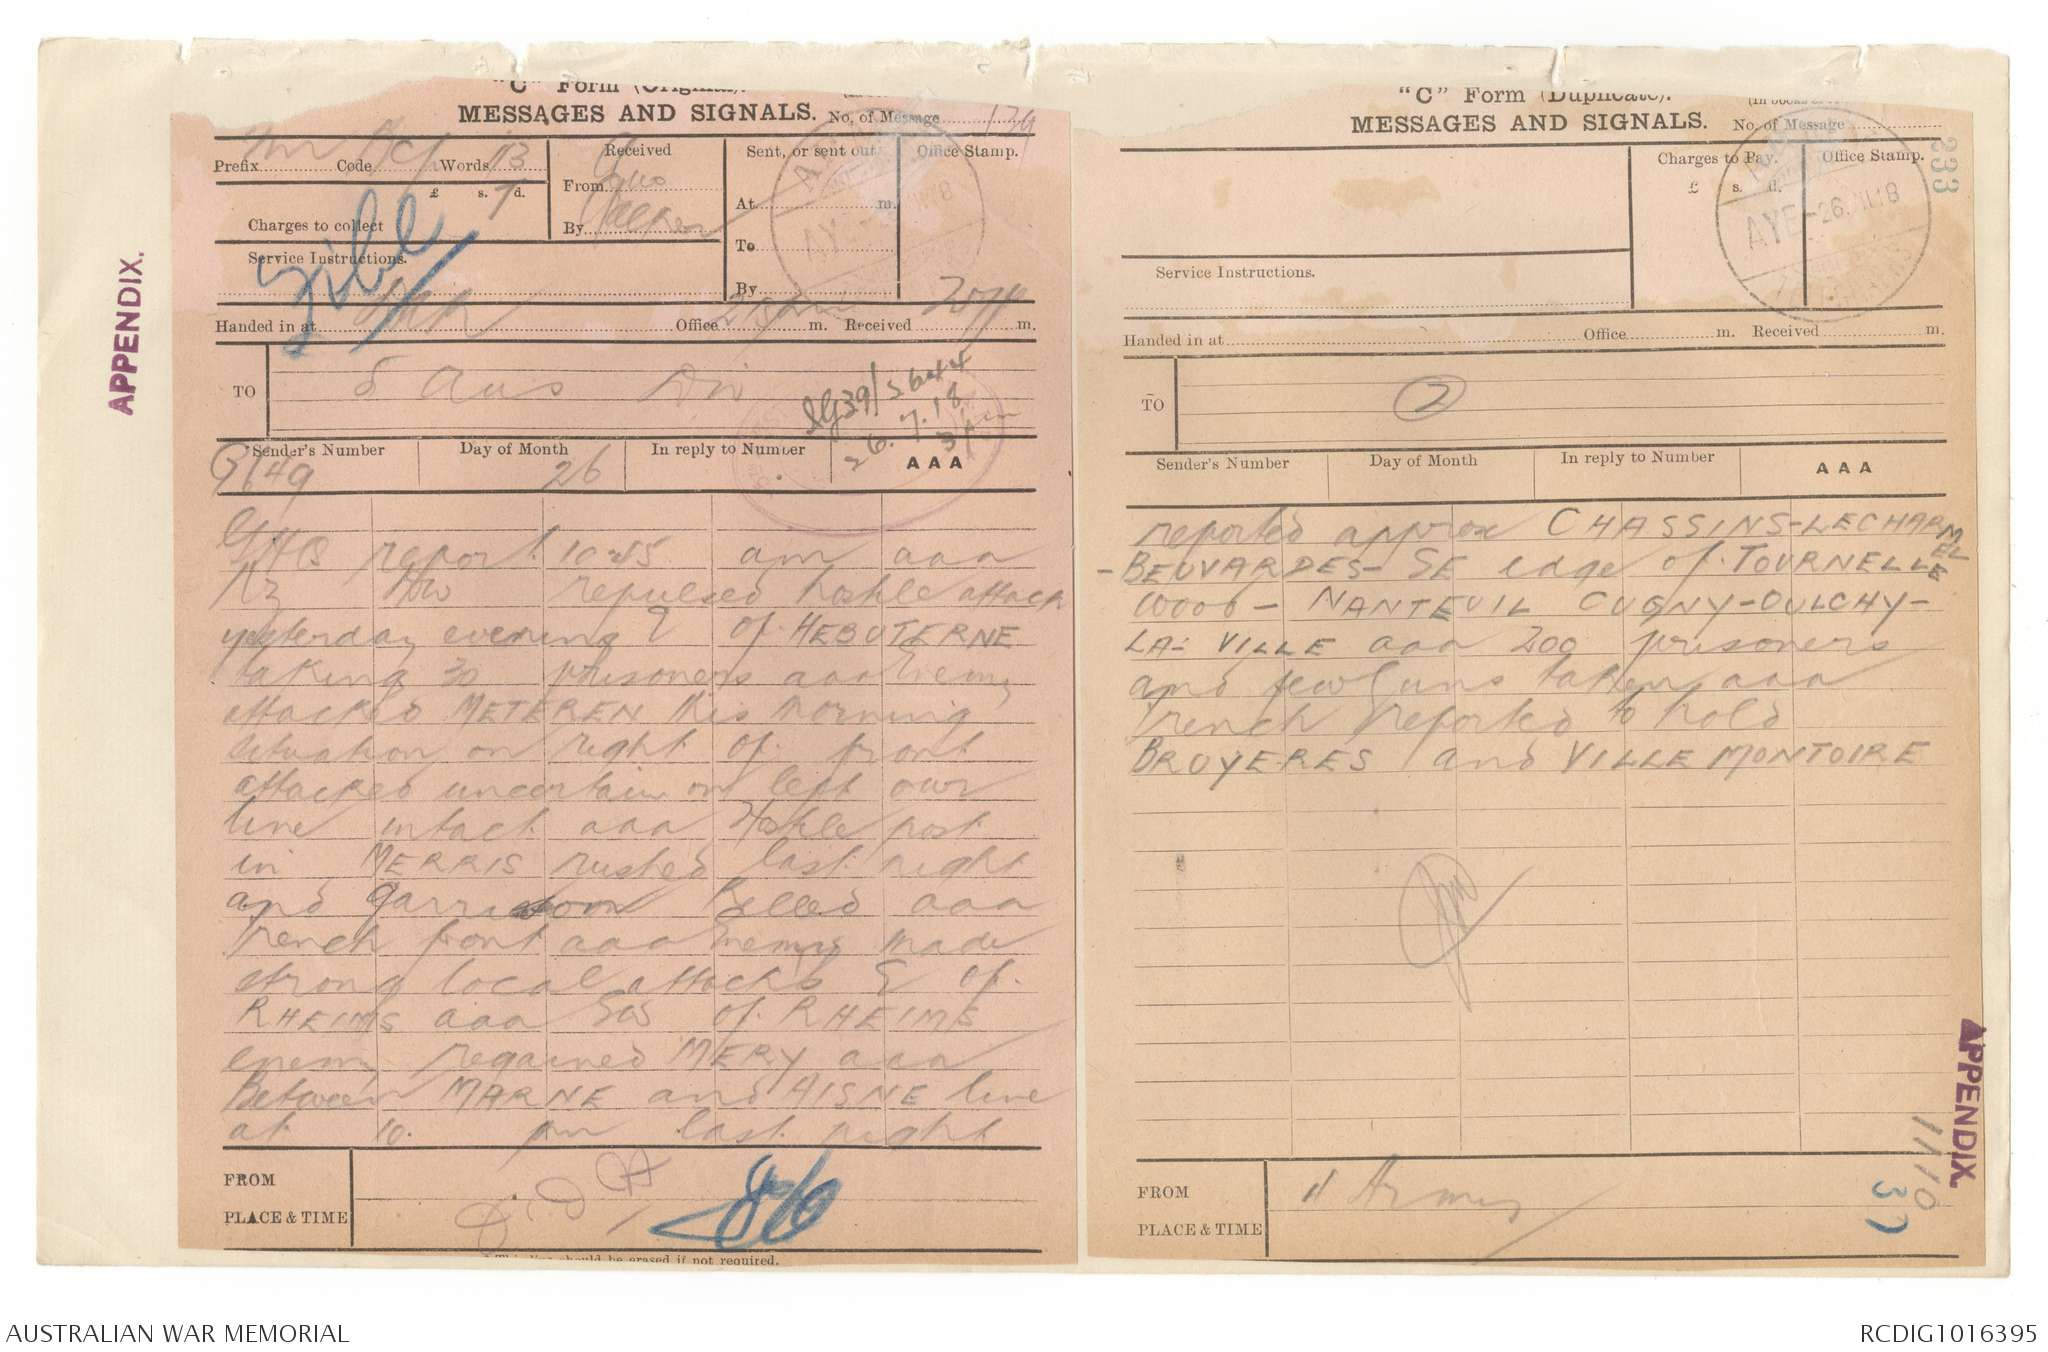 "C" Form (Original).
MESSAGES AND SIGNALS. No. of Message
Prefix Code Words 113
Received
From
By
Sent, or sent out
At m.
To
By
Office Stamp.
£ s. d.
Charges to collect
Service Instructions.
Handed in at Office m. Received m.
TO 5 Aus Div
IG39/5644
26.7.18
Sender's Number Day of Month In reply to Number AAA
G649 26
GHQ report 10-45 am aaa
NZ Div repulsed hostile attack
yesterday evening E of HEBUTERNE
taking 30 prisoners aaa Enemy
attacked METEREN this morning
situation on right of front
attacked uncertain on left our
line intact aaa Hostile post
in MERRIS rushed last night
and garrison killed aaa
French front aaa Enemy made
strong local attacks E of
RHEIMS aaa SW of RHEIMS
enemy regained MERY aaa
Between MARNE and AISNE line
at 10. pm last night
FROM
PLACE & TIME
be erased if not required.
APPENDIX.
"C" Form (Duplicate).
MESSAGES AND SIGNALS. No. of Message
Charges to Pay.
£ s. d.
Office Stamp.
AYE-26.VII.18
233
Service Instructions.
Handed in at Office m. Received m.
TO
2
Sender's Number Day of Month In reply to Number AAA
reported approx CHASSINS-LECHARMEL
-BEUVARDES-SE edge of TOURNELLE
wood - NANTEUIL CUGNY-OULCHY-
LA-VILLE aaa 200 prisoners
and few Guns taken aaa
French reported to hold
BRUYERES and VILLE MONTOIRE
FROM 4 Army
PLACE & TIME
APPENDIX.
AUSTRALIAN WAR MEMORIAL
RCDIG1016395